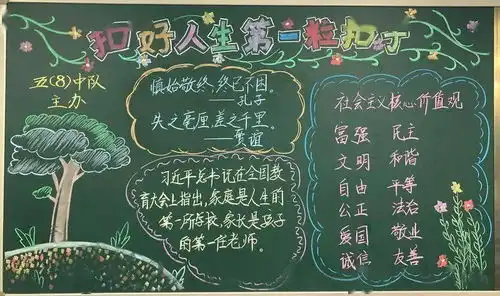 扣好人生第一粒扣子
五(8)中队
主办
慎始敬终,终已不困。
——孔子
失之毫厘,差之千里。
——贾谊
习近平总书记在全国教
育大会上指出,家庭是人生的
第一所学校,家长是孩子
的第一任老师。
社会主义核心价值观
富强 民主
文明 和谐
自由 平等
公正 法治
爱国 敬业
诚信 友善